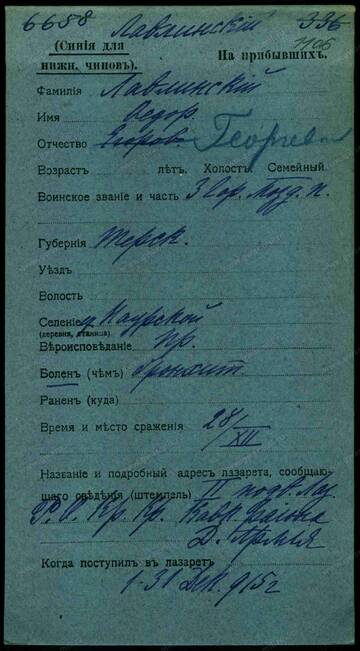 6658 Лавлинскій 336
1106
(Синія для
нижн. чиновъ). На прибывшихъ.
Фамилія Лавлинскій
Имя Ѳедор.
Отчество Егоров. Георгиев
Возрастъ лѣтъ. Холостъ. Семейный.
Воинское званіе и часть 3 Гор. Мозд. п.
Губернія Терск.
Уѣздъ
Волость
Селеніе Наурской
(деревня, станица)
Вѣроисповѣданіе пр.
Боленъ (чѣмъ) бронхит
Раненъ (куда)
Время и мѣсто сраженія 28/XII
Названіе и подробный адресъ лазарета, сообщаю-
щаго свѣдѣнія (штемпель) II подв. Лаз.
Р. О. Кр. Кр. Кавк. района
Д. Армія
Когда поступилъ въ лазаретъ
1-31 Дек. 915 г